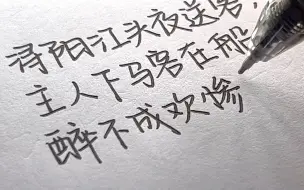 浔阳江头夜送客，
主人下马客在船
醉不成欢惨